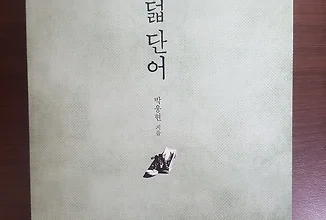 덟 단어
박웅현 지음